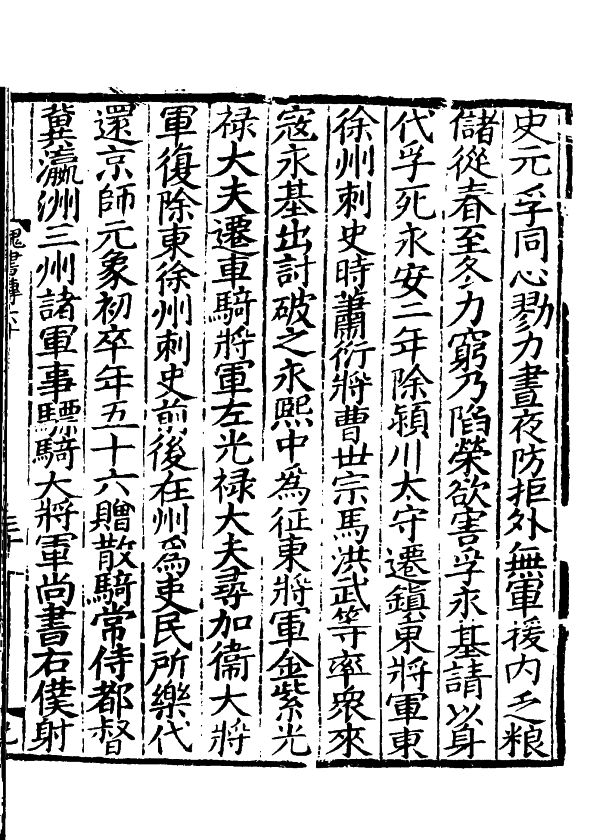 史元孚同心勠力晝夜防拒外無軍援内乏粮
儲從春至冬力窮乃陷榮欲害孚永基請以身
代孚死永安二年除潁川太守遷鎮東將軍東
徐州刺史時蕭衍將曹世宗馬洪武等率衆來
寇永基出討破之永熙中爲征東將軍金紫光
禄大夫遷車騎將軍左光禄大夫尋加衞大將
軍復除東徐州刺史前後在州爲吏民所樂代
還京師元象初卒年五十六贈散騎常侍都督
冀瀛洲三州諸軍事驃騎大將軍尚書右僕射